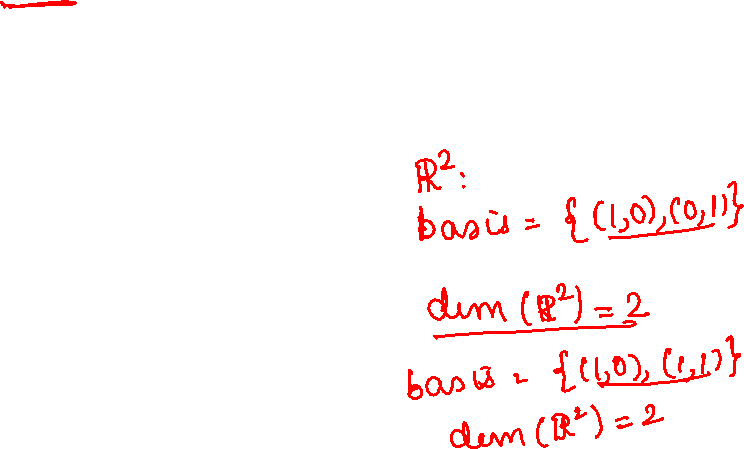 ℝ²:
basis = {(1,0),(0,1)}
dim (ℝ²) = 2
basis = {(1,0), (1,1)}
dim (ℝ²) = 2